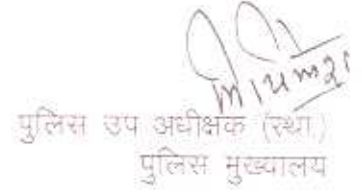 पुलिस उप अधीक्षक (स्था.)
पुलिस मुख्यालय